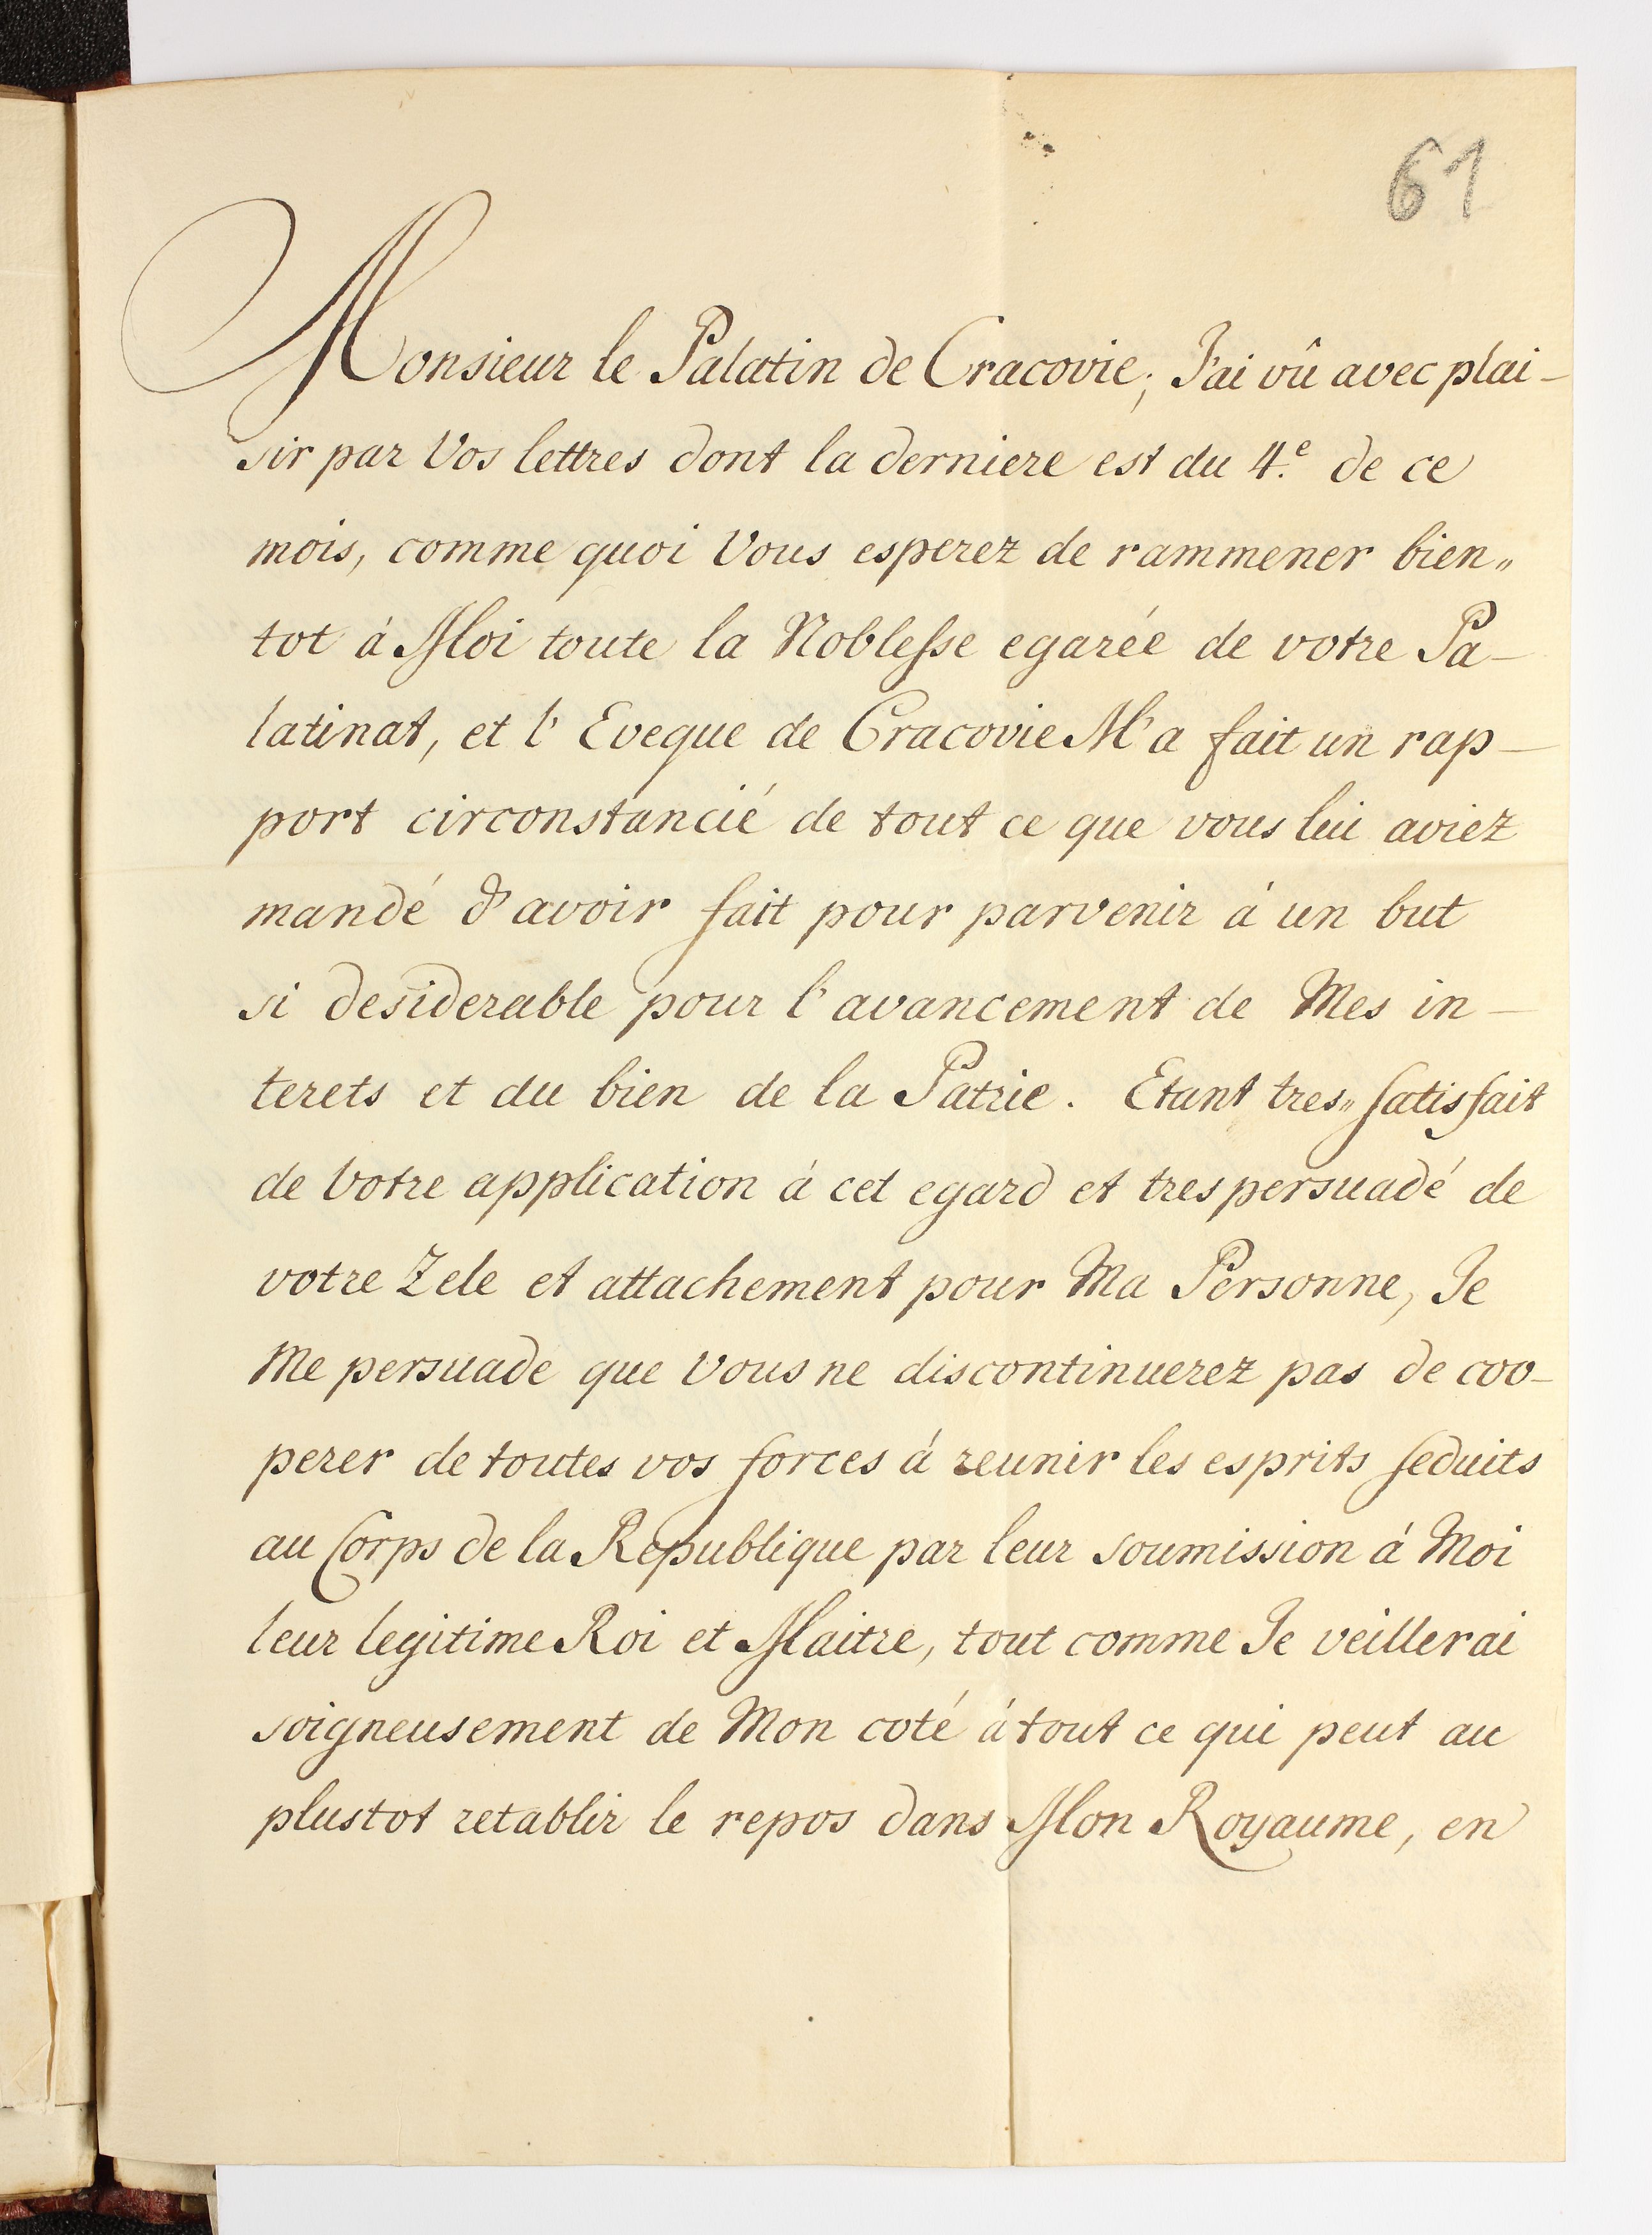 61
Monsieur le Palatin de Cracovie; J'ai vû avec plai-
sir par Vos lettres dont la derniere est du 4.e de ce
mois, comme quoi Vous esperez de rammener bien„
tot à Moi toute la Noblesse egarée de votre Pa-
latinat, et l'Eveque de Cracovie M'a fait un rap-
port circonstancié de tout ce que vous lui aviez
mandé d'avoir fait pour parvenir à un but
si desiderable pour l'avancement de Mes in-
terets et du bien de la Patrie. Etant tres„ satisfait
de Votre application à cet egard et tres persuadé de
votre Zele et attachement pour Ma Personne, Je
Me persuade que Vous ne discontinuerez pas de coo-
perer de toutes vos forces à reunir les esprits seduits
au Corps de la Republique par leur soumission à Moi
leur legitime Roi et Maitre, tout comme Je veillerai
soigneusement de Mon coté à tout ce qui peut au
plustot retablir le repos dans Mon Royaume, en